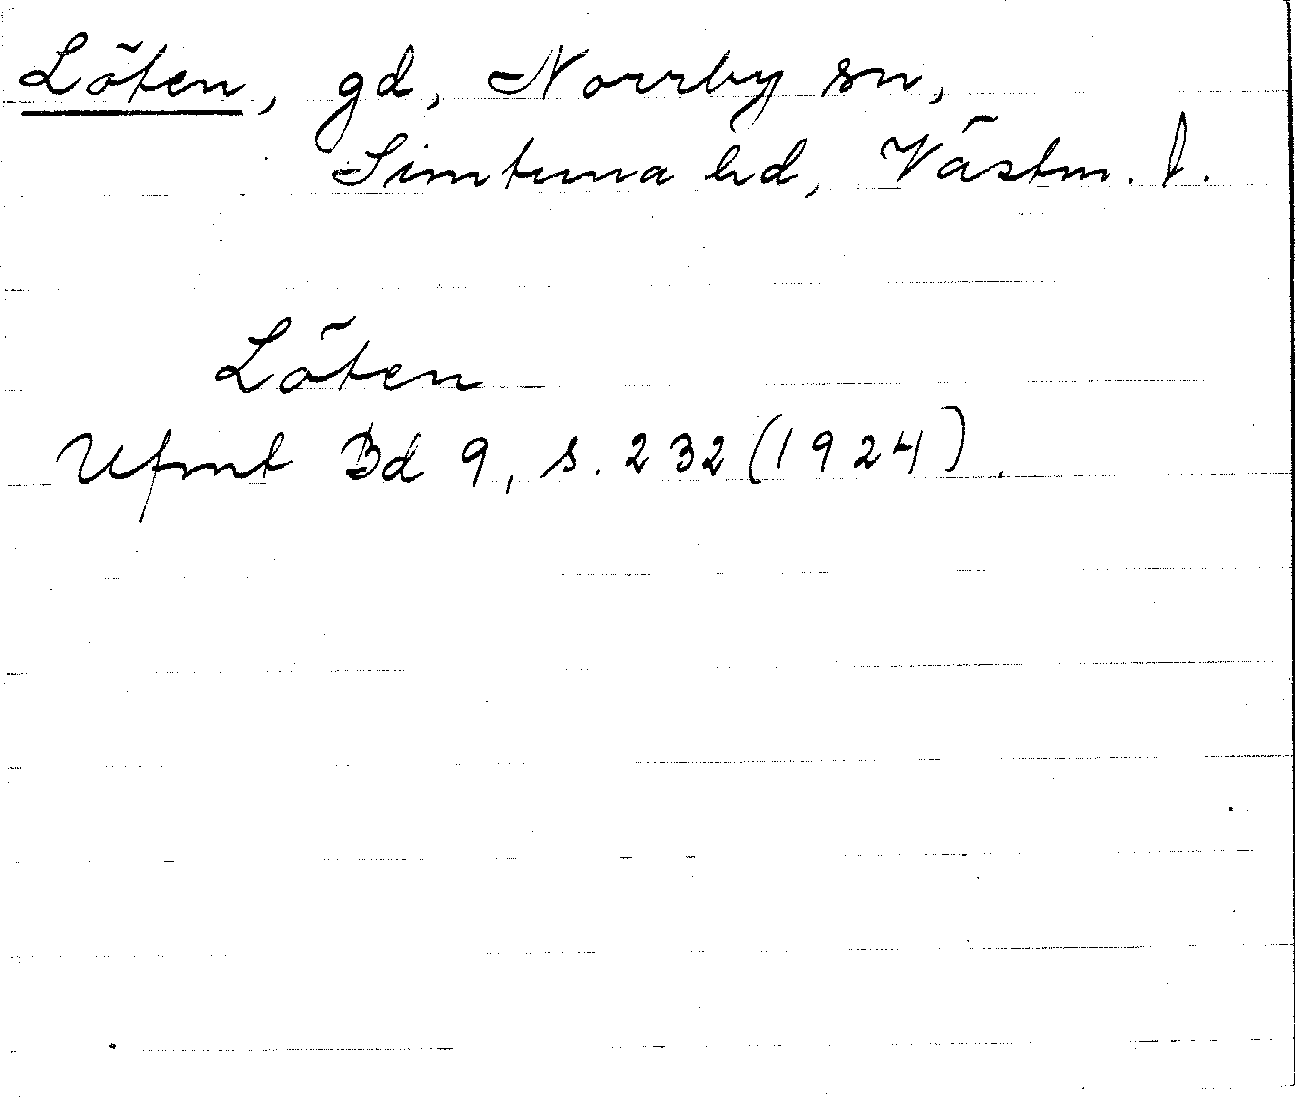 Löten, gd, Norrby sn,
Simtuna hd, Västm. l.
Löten
Ufmt Bd 9, s. 232 (1924).